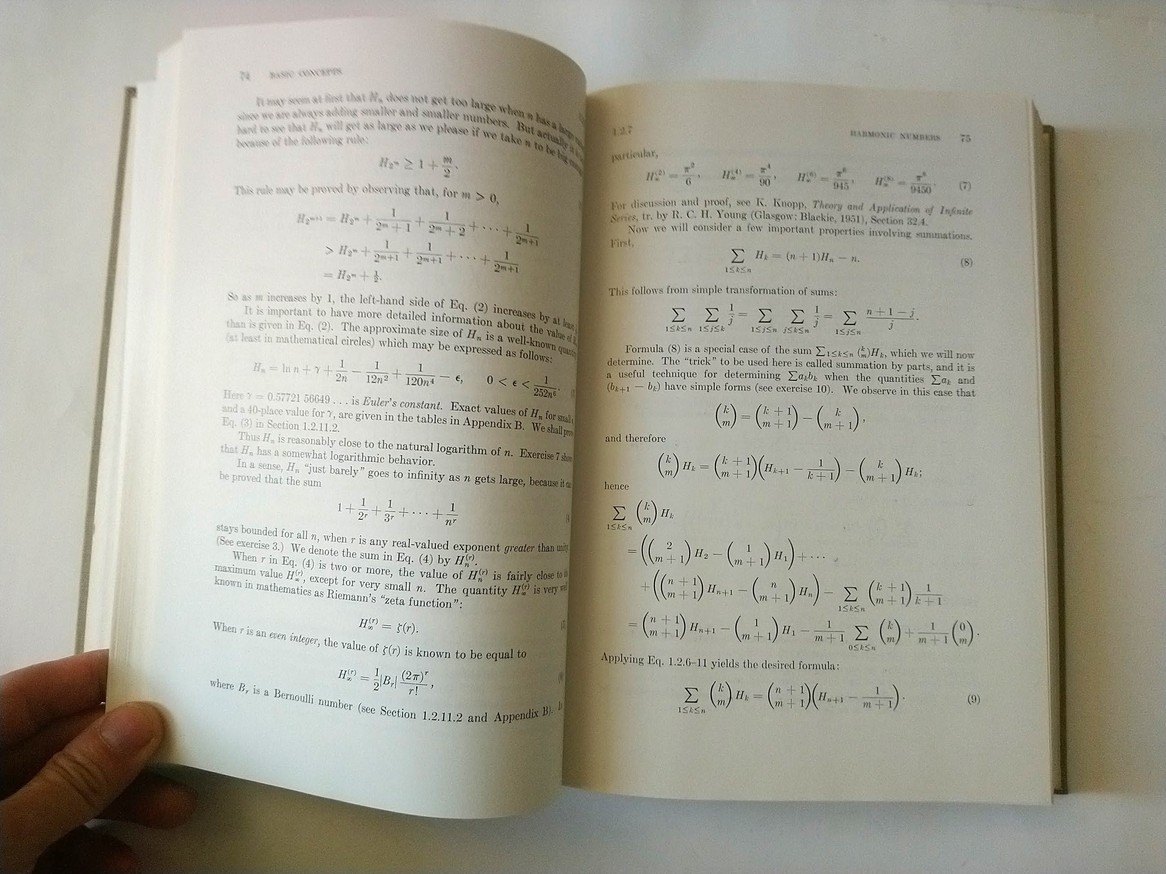 74 BASIC CONCEPTS
It may seem at first that Hₙ does not get too large when n has a large
since we are always adding smaller and smaller numbers. But actually it is
hard to see that Hₙ will get as large as we please if we take n to be big
because of the following rule:
H_{2^m} ≥ 1 + m/2.
This rule may be proved by observing that, for m > 0,
H_{2^{m+1}} = H_{2^m} + 1/(2^m + 1) + 1/(2^m + 2) + · · · + 1/2^{m+1}
> H_{2^m} + 1/2^{m+1} + 1/2^{m+1} + · · · + 1/2^{m+1}
= H_{2^m} + 1/2.
So as m increases by 1, the left-hand side of Eq. (2) increases by at least
It is important to have more detailed information about the value of
than is given in Eq. (2). The approximate size of Hₙ is a well-known
(at least in mathematical circles) which may be expressed as follows:
Hₙ = ln n + γ + 1/(2n) − 1/(12n²) + 1/(120n⁴) − ϵ, 0 < ϵ < 1/(252n⁶).
Here γ = 0.57721 56649 . . . is Euler's constant. Exact values of Hₙ for small
and a 40-place value for γ, are given in the tables in Appendix B. We shall
Eq. (3) in Section 1.2.11.2.
Thus Hₙ is reasonably close to the natural logarithm of n. Exercise 7
that Hₙ has a somewhat logarithmic behavior.
In a sense, Hₙ "just barely" goes to infinity as n gets large, because it
be proved that the sum
1 + 1/2^r + 1/3^r + · · · + 1/n^r
stays bounded for all n, when r is any real-valued exponent greater than
(See exercise 3.) We denote the sum in Eq. (4) by Hₙ^{(r)}.
When r in Eq. (4) is two or more, the value of Hₙ^{(r)} is fairly close to
maximum value H_∞^{(r)}, except for very small n. The quantity H_∞^{(r)} is very
known in mathematics as Riemann's "zeta function":
H_∞^{(r)} = ζ(r).
When r is an even integer, the value of ζ(r) is known to be equal to
H_∞^{(r)} = 1/2 |B_r| (2π)^r / r!,
where B_r is a Bernoulli number (see Section 1.2.11.2 and Appendix B).
1.2.7 HARMONIC NUMBERS 75
particular,
H_∞^{(2)} = π²/6, H_∞^{(4)} = π⁴/90, H_∞^{(6)} = π⁶/945, H_∞^{(8)} = π⁸/9450. (7)
For discussion and proof, see K. Knopp, Theory and Application of Infinite
Series, tr. by R. C. H. Young (Glasgow: Blackie, 1951), Section 32.4.
Now we will consider a few important properties involving summations.
First,
∑_{1≤k≤n} H_k = (n + 1)Hₙ − n. (8)
This follows from simple transformation of sums:
∑_{1≤k≤n} ∑_{1≤j≤k} 1/j = ∑_{1≤j≤n} ∑_{j≤k≤n} 1/j = ∑_{1≤j≤n} (n + 1 − j)/j.
Formula (8) is a special case of the sum ∑_{1≤k≤n} (k m)H_k, which we will now
determine. The "trick" to be used here is called summation by parts, and it is
a useful technique for determining ∑a_k b_k when the quantities ∑a_k and
(b_{k+1} − b_k) have simple forms (see exercise 10). We observe in this case that
(k m) = (k + 1 m + 1) − (k m + 1),
and therefore
(k m) H_k = (k + 1 m + 1)(H_{k+1} − 1/(k + 1)) − (k m + 1) H_k;
hence
∑_{1≤k≤n} (k m) H_k
= ((2 m + 1) H₂ − (1 m + 1) H₁) + · · ·
+ ((n + 1 m + 1) H_{n+1} − (n m + 1) Hₙ) − ∑_{1≤k≤n} (k + 1 m + 1) 1/(k + 1)
= (n + 1 m + 1) H_{n+1} − (1 m + 1) H₁ − 1/(m + 1) ∑_{0≤k≤n} (k m) + 1/(m + 1) (0 m).
Applying Eq. 1.2.6–11 yields the desired formula:
∑_{1≤k≤n} (k m) H_k = (n + 1 m + 1)(H_{n+1} − 1/(m + 1)). (9)